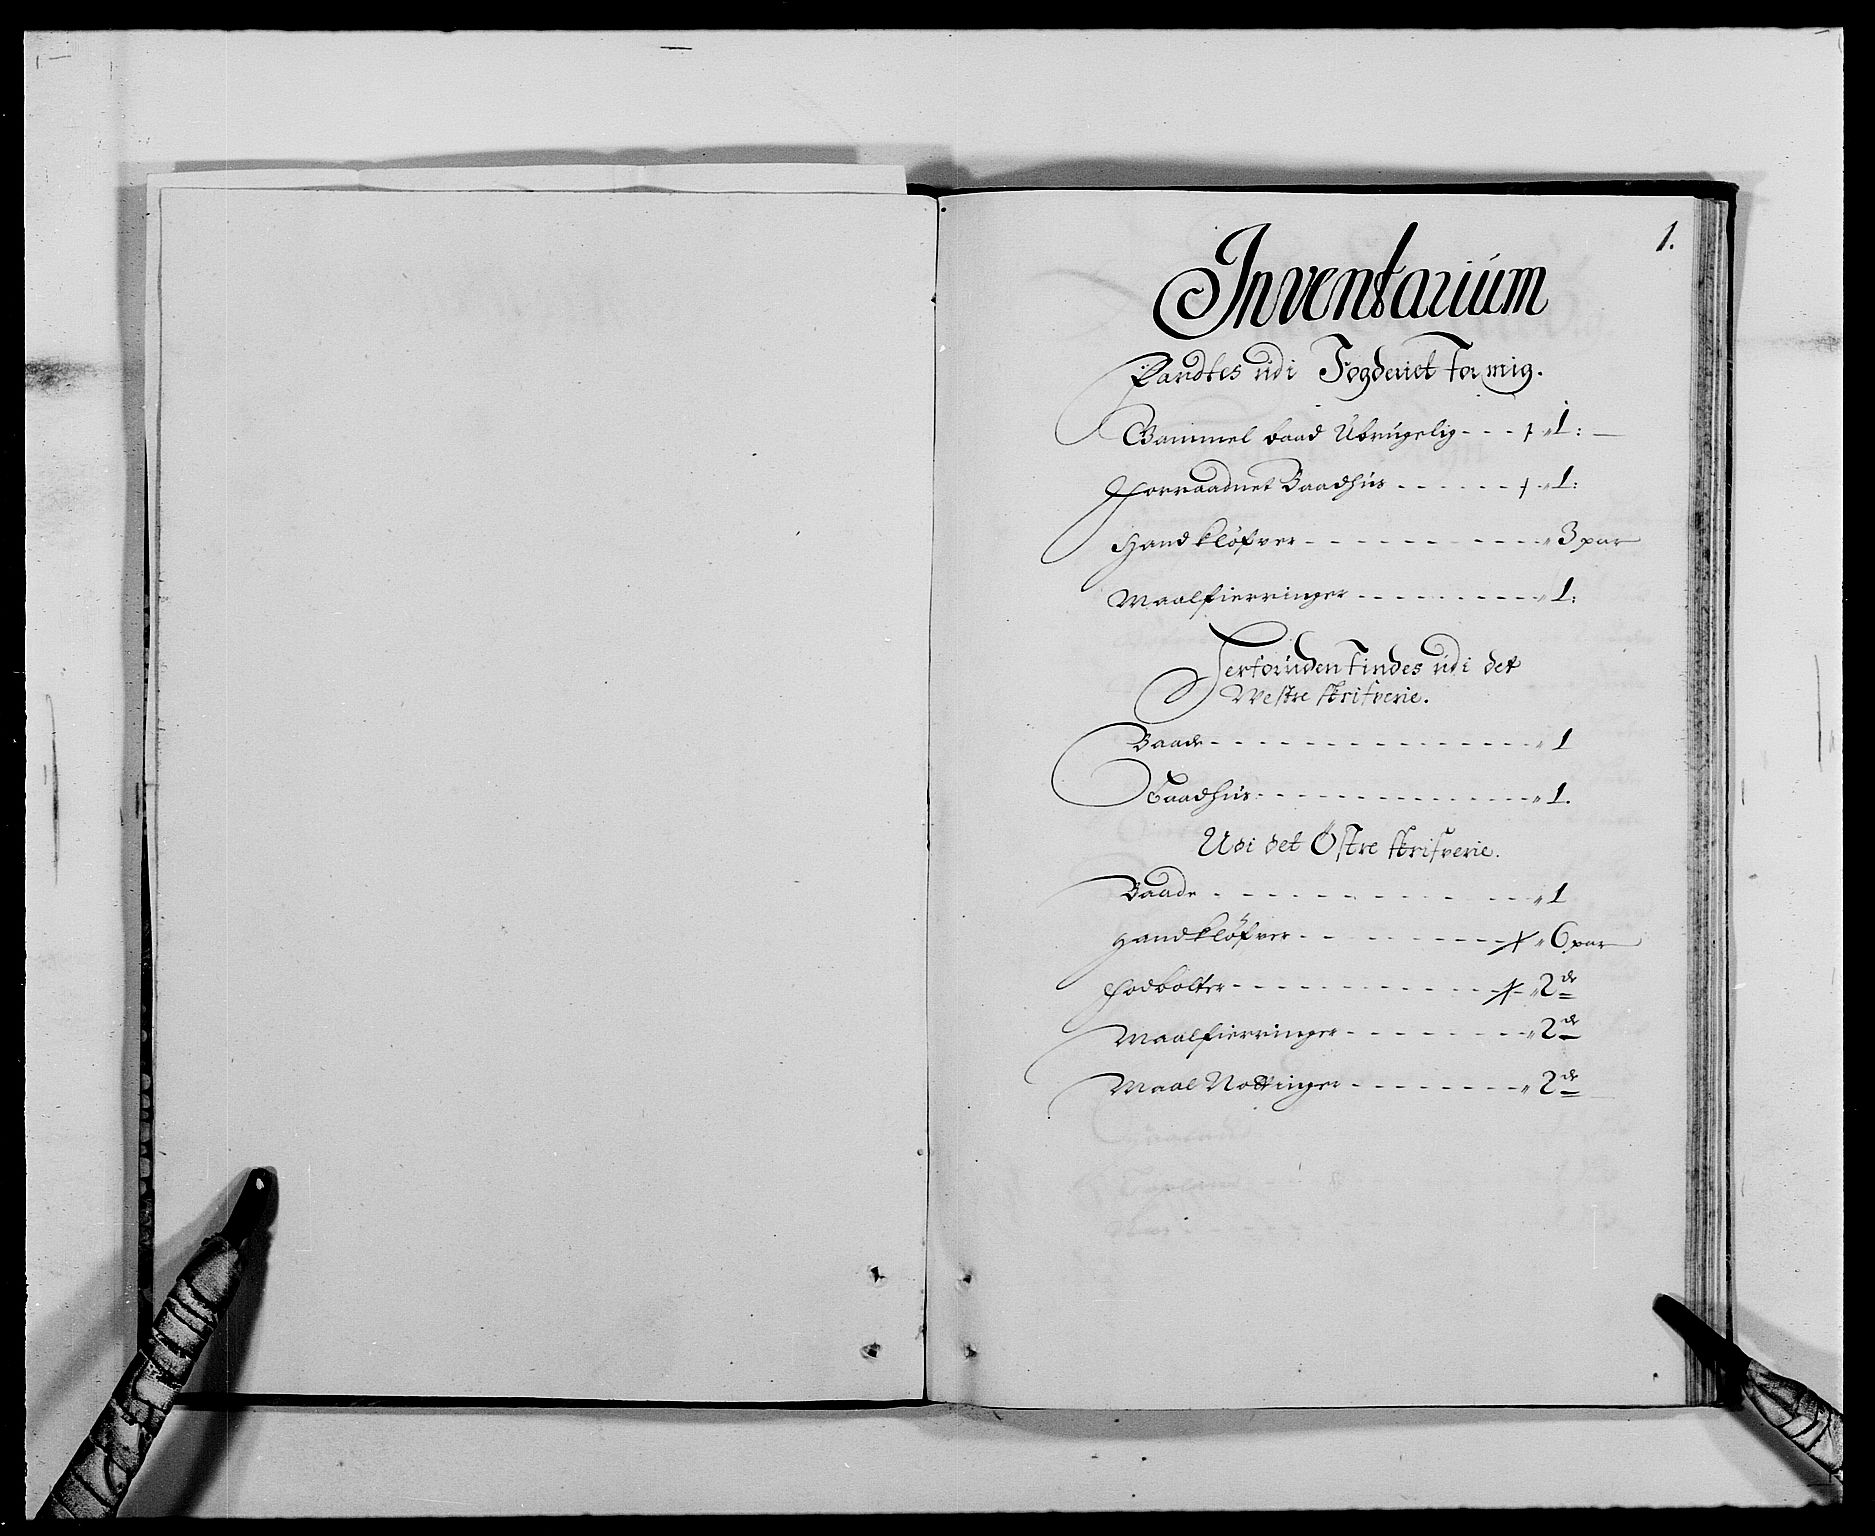 1.
Inventarium
Fandtes udi Fogderiet for mig.
Gammel baad Ubrugelig - - - + „ 1: —
Forraadnet Baadhus - - - - - - + „ 1:
Handkløfver - - - - - - - - - - „ 3 par
Maalfierringer - - - - - - - - - „ 1:
Derforuden findes udi det
Westre skrifverie.
Baade - - - - - - - - - - - - - - „ 1
Baadhus - - - - - - - - - - - - - „ 1.
Udi det Östre skrifverie.
Baade - - - - - - - - - - - - - „ 1
Handkløfver - - - - - - - - + „ 6 par
Fodbolter - - - - - - - - - - + - „ 2de
Maalfierringer - - - - - - - - „ 2de
Maal Nottinger - - - - - - - - „ 2de